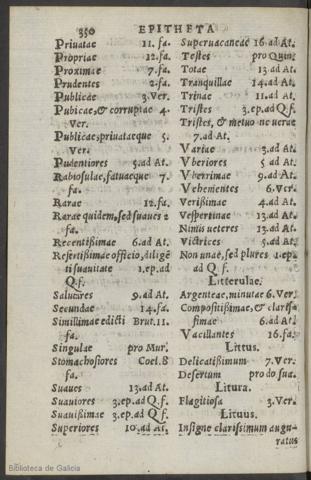 350 EPITHETA
Priuatae 11. fa.
Propriae 12. fa.
Proximae 7. fa.
Prudentes 2. fa.
Publicae 3. Ver.
Pubicae, & corruptae 4.
Ver.
Publicae, priuataeque 5.
Ver.
Pudentiores 5. ad At.
Rabiosulae, fatuaeque 7.
fa.
Rarae 12. fa.
Rarae quidem, sed suaues 2
fa.
Recentißimae 6. ad At.
Refertißimae officio, diligē
ti suauitate 1. ep. ad
Q. f.
Salutares 9. ad At.
Secundae 14. fa.
Simillimae edicti Brut. 11.
fa.
Singulae pro Mur.
Stomachosiores Coel. 8
fa.
Suaues 13. ad At.
Suauiores 3. ep. ad Q. f.
Suauißimae 3. ep. ad Q f.
Superiores 10. ad At.
Superuacaneae 16. ad At.
Testes pro Quin.
Totae 13. ad At.
Tranquillae 14. ad At.
Trinae 11. ad At.
Tristes 3. ep. ad Q. f.
Tristes, & metuo ne verae
7. ad At.
Variae 3. ad At.
Vberiores 5 ad At.
Vberrimae 9. ad At.
Vehementes 6. Ver.
Verißimae 4. ad At.
Vespertinae 13. ad At.
Nimis veteres 13. ad At.
Victrices 5. ad At.
Non unae, sed plures 1. ep.
ad Q f.
Litterulae.
Argenteae, minutae 6. Ver.
Compositißimae, & clarissi
simae 6. ad At.
Vacillantes 16. fa.
Littus.
Delicatißimum 7. Ver.
Desertum pro do sua.
Litura.
Flagitiosa 3. Ver.
Lituus.
Insigne clarissimum augu-
ratus
Biblioteca de Galicia